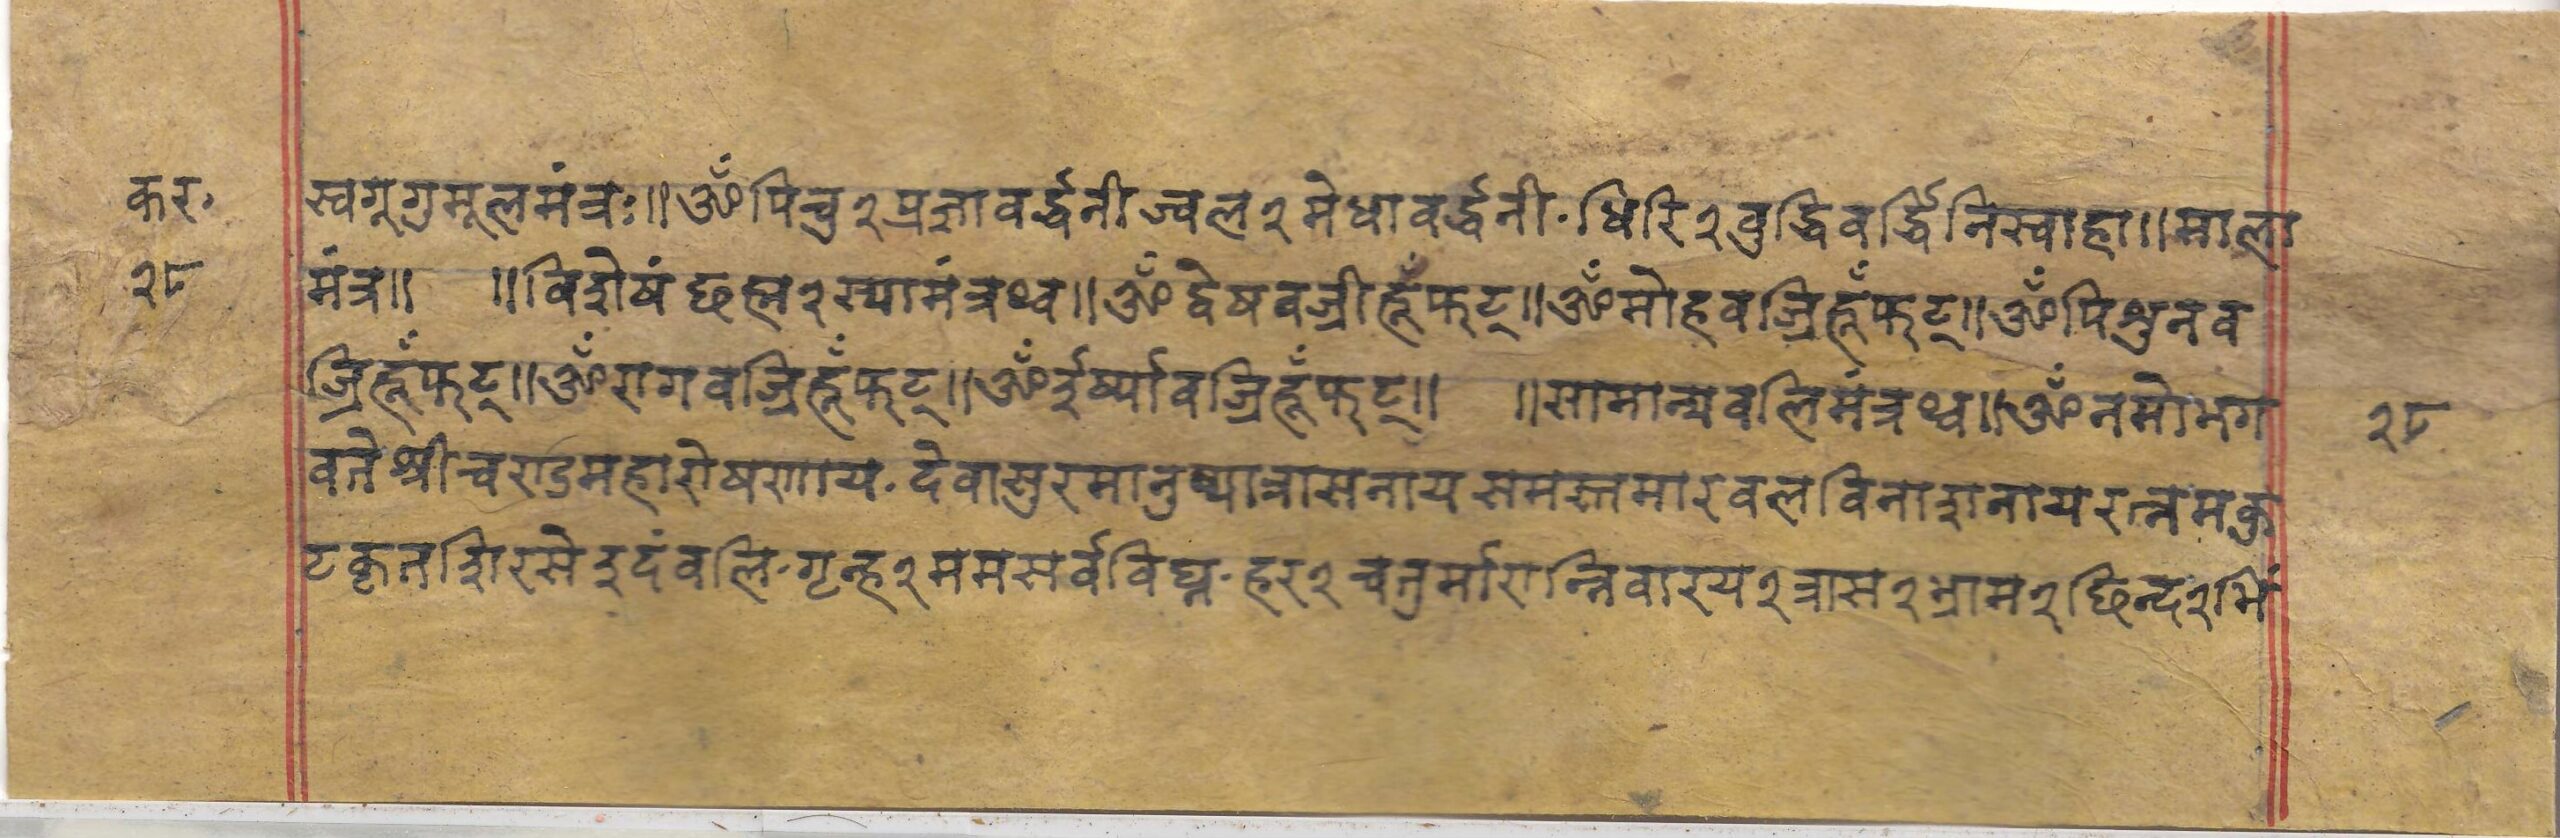 कर॰ स्वगूगुमूलमंत्रः॥ ॐ पिचु२प्रज्ञावर्द्धनी ज्वल२मेधावर्द्धनी॰ धिरि२वुद्धिवर्द्धिनिस्वाहा॥ माला
२८ मंत्र॥ ॥ विशेषं छह्म२स्यामंत्रथ्व॥ ॐ द्वेषवज्रीहूँफट्॥ ॐ मोहवज्रिहूँफट्॥ ॐ पिशुनव
ज्रिहूँफट्॥ ॐ रागवज्रिहूँफट्॥ ॐ ईर्ष्यावज्रिहूँफट्॥ ॥ सामान्यवलिमंत्रथ्व॥ ॐ नमोभग २८
वते श्रीचण्डमहारोषणाय॰ देवासुरमानुष्यात्रासनाय समस्तमारवलविनाशनाय रत्नमकु
टकृतशिरसे इदंवलि॰ गृन्ह२ममसर्वविघ्न॰ हर२ चतुर्मारान्निवारय२ त्रास२ भ्राम२ छिन्द२ भिं